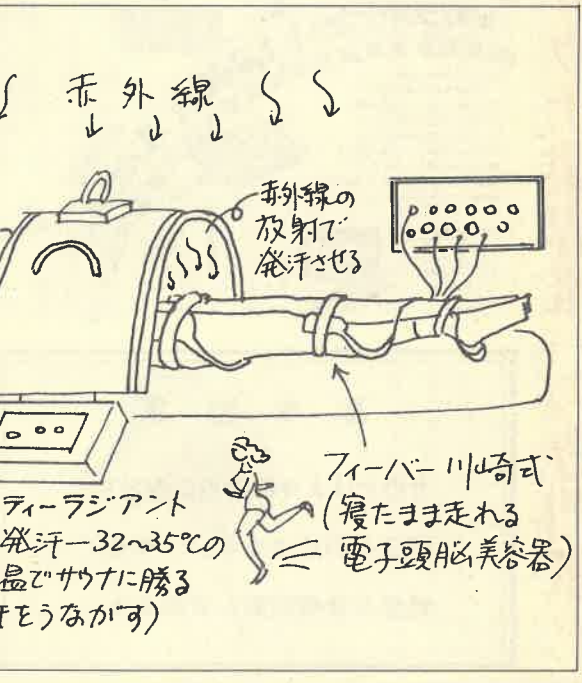 赤外線
赤外線の
放射で
発汗させる
フィーバー川崎式
(寝たまま走れる
電子頭脳美容器)
ティーラジアント
発汗ー32~35℃の
温でサウナに勝る
汗をうながす)